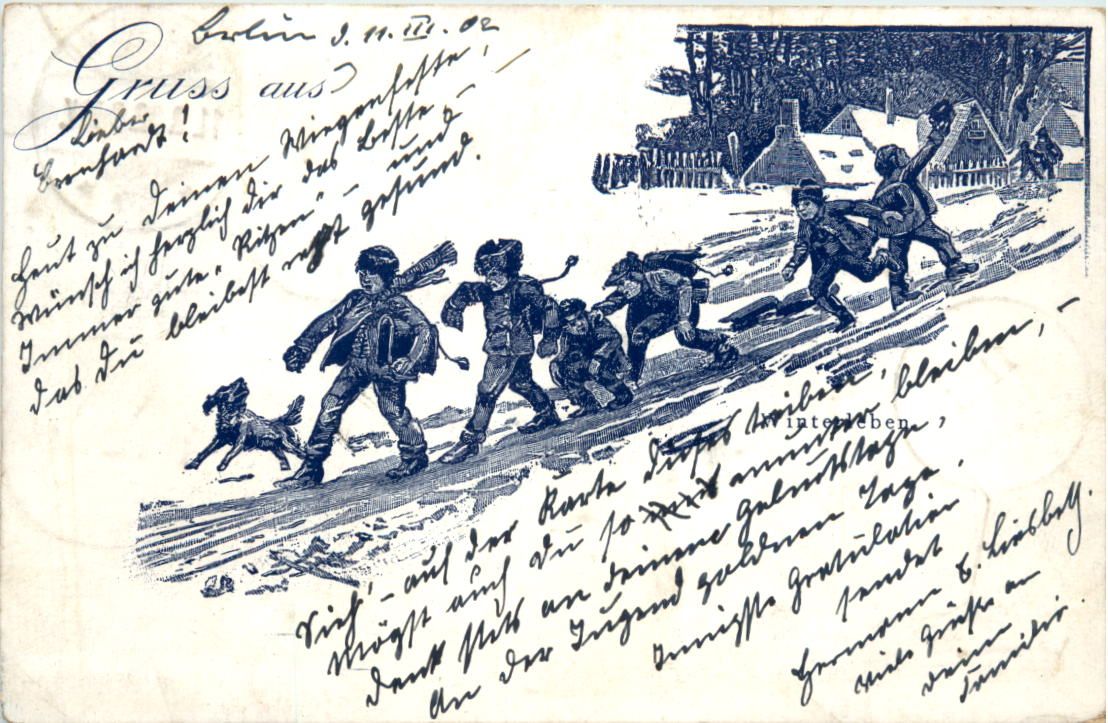 Gruss aus
Berlin d. 11. III. 02
Lieber
Bernhardt!
Heut zu deinem Wiegenfeste,
Wünsch ich herzlich dir das Beste –
Immer gute " Ritzen" – und
das du bleibest recht gesund.
Winterleben.
Sieh'! – auf der Karte dieses treiben, –
Mögst auch du so munter bleiben,
Denk stets an deinem Geburtstage,
An der Jugend goldnen Tage.
Innigste Gratulation
sendet
Hermann & Liesbeth.
Viele Grüße an
deine
Familie.